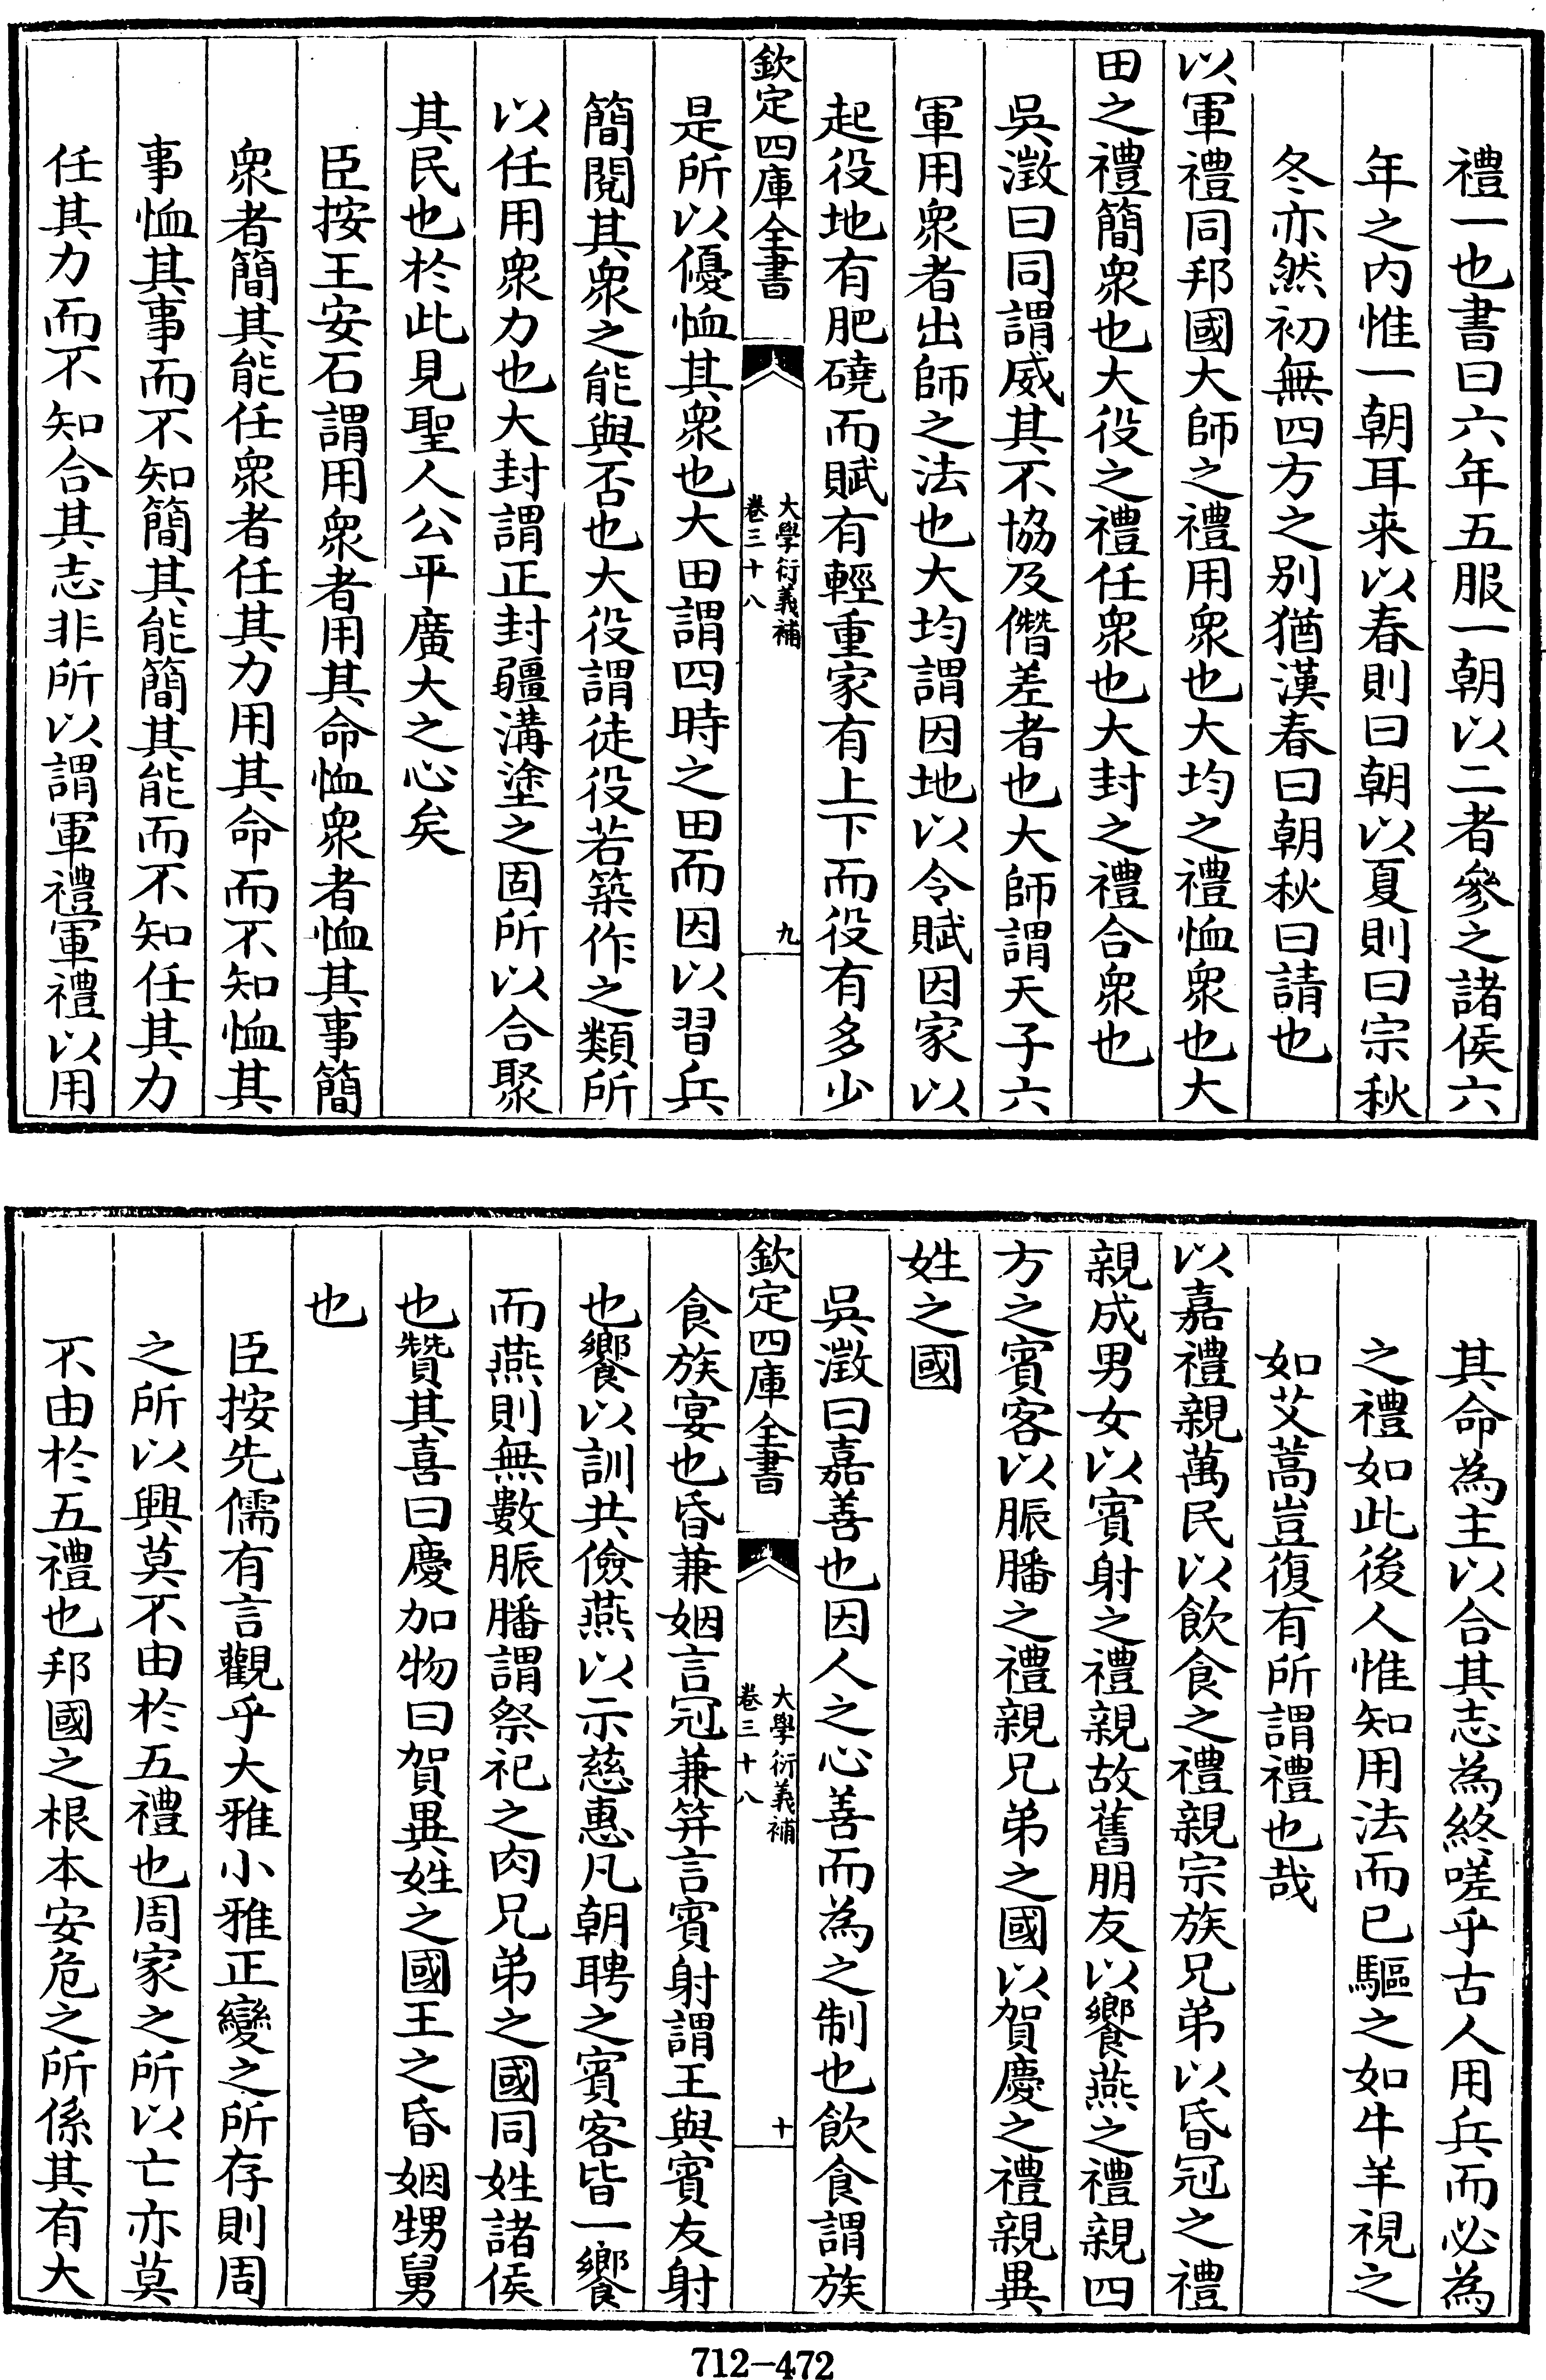 禮一也書曰六年五服一朝以二者參之諸侯六
年之内惟一朝耳来以春則曰朝以夏則曰宗秋
冬亦然初無四方之别猶漢春曰朝秋曰請也
以軍禮同邦國大師之禮用衆也大均之禮恤衆也大
田之禮簡衆也大役之禮任衆也大封之禮合衆也
吳澂曰同謂威其不協及僭差者也大師謂天子六
軍用衆者出師之法也大均謂因地以令賦因家以
起役地有肥磽而賦有輕重家有上下而役有多少
欽定四庫全書
大學衍義補
卷三十八
九
是所以優恤其衆也大田謂四時之田而因以習兵
簡閱其衆之能與否也大役謂徒役若築作之類所
以任用衆力也大封謂正封疆溝塗之固所以合聚
其民也於此見聖人公平廣大之心矣
臣按王安石謂用衆者用其命恤衆者恤其事簡
衆者簡其能任衆者任其力用其命而不知恤其
事恤其事而不知簡其能簡其能而不知任其力
任其力而不知合其志非所以謂軍禮軍禮以用
其命為主以合其志為終嗟乎古人用兵而必為
之禮如此後人惟知用法而已驅之如牛羊視之
如艾蒿豈復有所謂禮也哉
以嘉禮親萬民以飲食之禮親宗族兄弟以昏冠之禮
親成男女以賓射之禮親故舊朋友以饗燕之禮親四
方之賓客以脤膰之禮親兄弟之國以賀慶之禮親異
姓之國
吳澂曰嘉善也因人之心善而為之制也飲食謂族
欽定四庫全書
大學衍義補
卷三十八
十
食族宴也昏兼姻言冠兼笄言賓射謂王與賓友射
也饗以訓共儉燕以示慈惠凡朝聘之賓客皆一饗
而燕則無數脤膰謂祭祀之肉兄弟之國同姓諸侯
也贊其喜曰慶加物曰賀異姓之國王之昏姻甥舅
也
臣按先儒有言觀乎大雅小雅正變之所存則周
之所以興莫不由於五禮也周家之所以亡亦莫
不由於五禮也邦國之根本安危之所係其有大
712-472